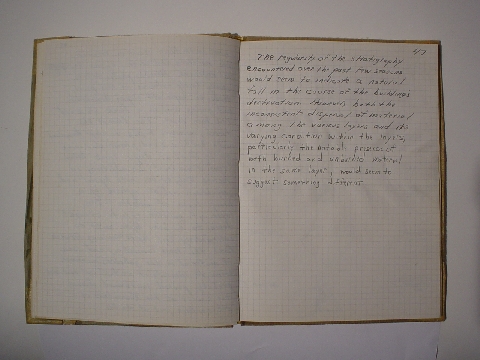 47
The regularity of the stratigraphy
encountered over the past few seasons
would seem to indicate a natural
fall in the course of the building's
destruction. However, both the
inconsistent dispersal of material
among the various layers and the
varying within the layers,
particularly the presence of
both burned and unburned material
in the same layer, would seem to
suggest something different.